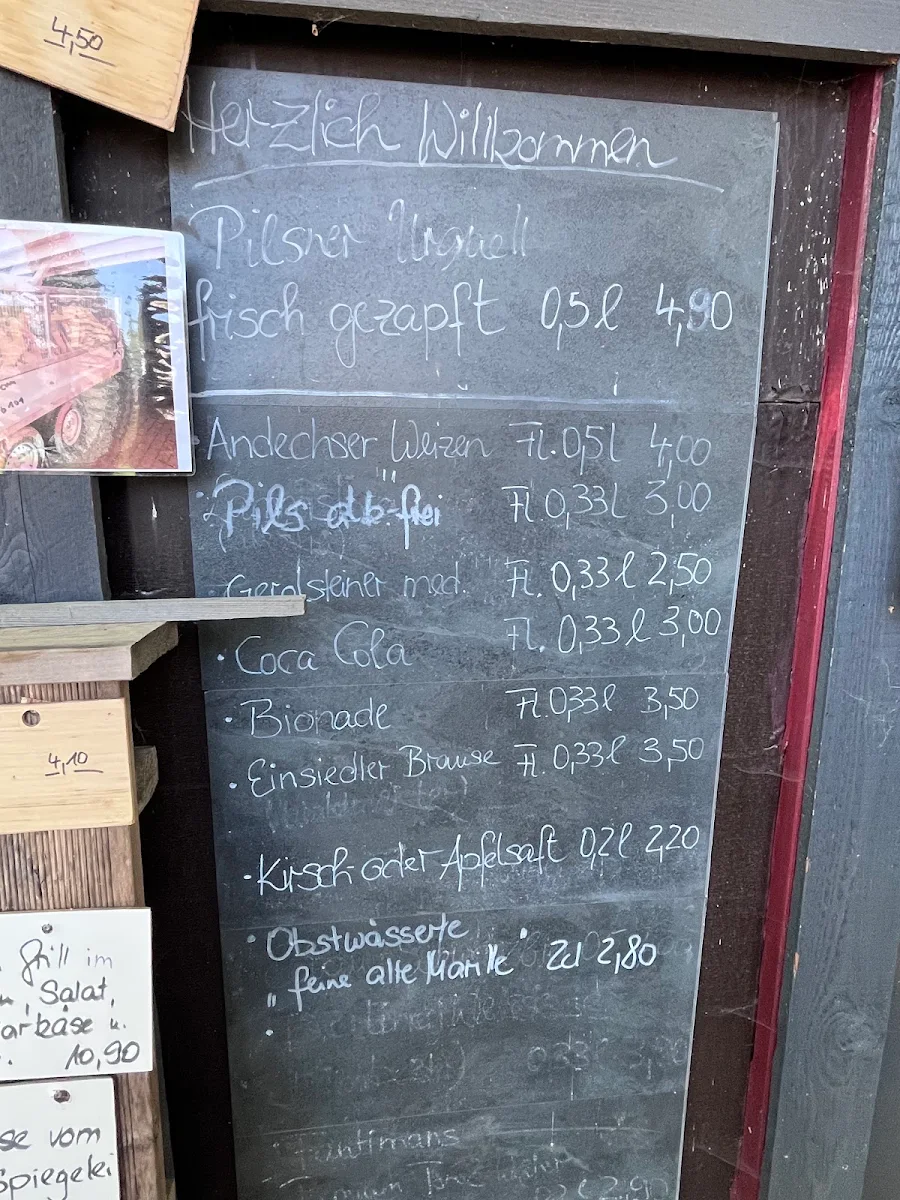 4,50
Herzlich Willkommen
Pilsner Urquell
frisch gezapft 0,5l 4,90
· Andechser Weizen Fl. 0,5l 4,00
· Pils alk-frei Fl. 0,33l 3,00
Gerolsteiner med. Fl. 0,33l 2,50
· Coca Cola Fl. 0,33l 3,00
· Bionade Fl. 0,33l 3,50
· Einsiedler Brause Fl. 0,33l 3,50
· Kirsch oder Apfelsaft 0,2l 2,20
· Obstwässerle
"feine alte Marille" 2cl 2,80
4,10
Grill im
Salat,
u.
10,90
vom
Spiegelei
Fentimans